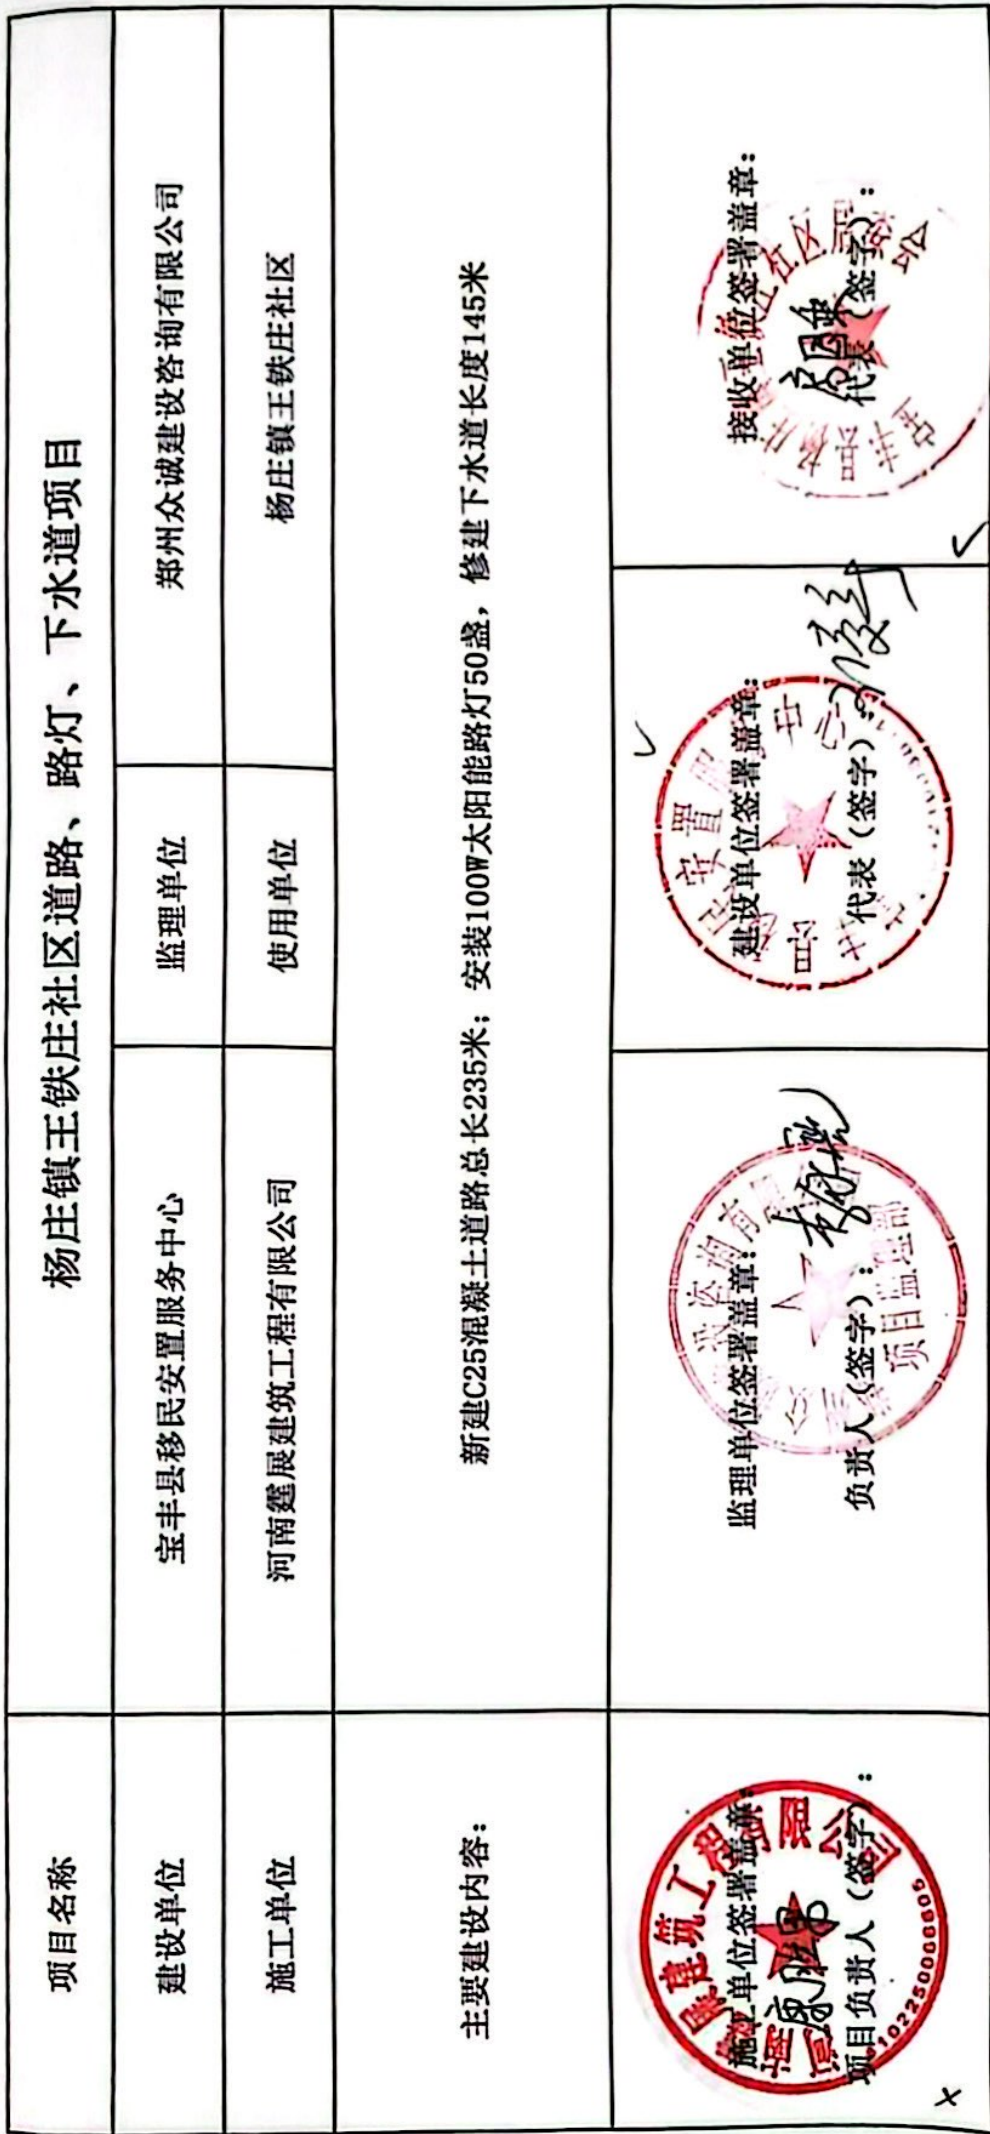 项目名称 杨庄镇王铁庄社区道路、路灯、下水道项目
建设单位 宝丰县移民安置服务中心 监理单位 郑州众诚建设咨询有限公司
施工单位 河南霆展建筑工程有限公司 使用单位 杨庄镇王铁庄社区
主要建设内容： 新建C25混凝土道路总长235米；安装100W太阳能路灯50盏，修建下水道长度145米
施工单位签署盖章：
项目负责人（签字）：
监理单位签署盖章：
负责人（签字）：
项目监理部
建设单位签署盖章：
代表（签字）：
接收单位签署盖章：
代表（签字）：